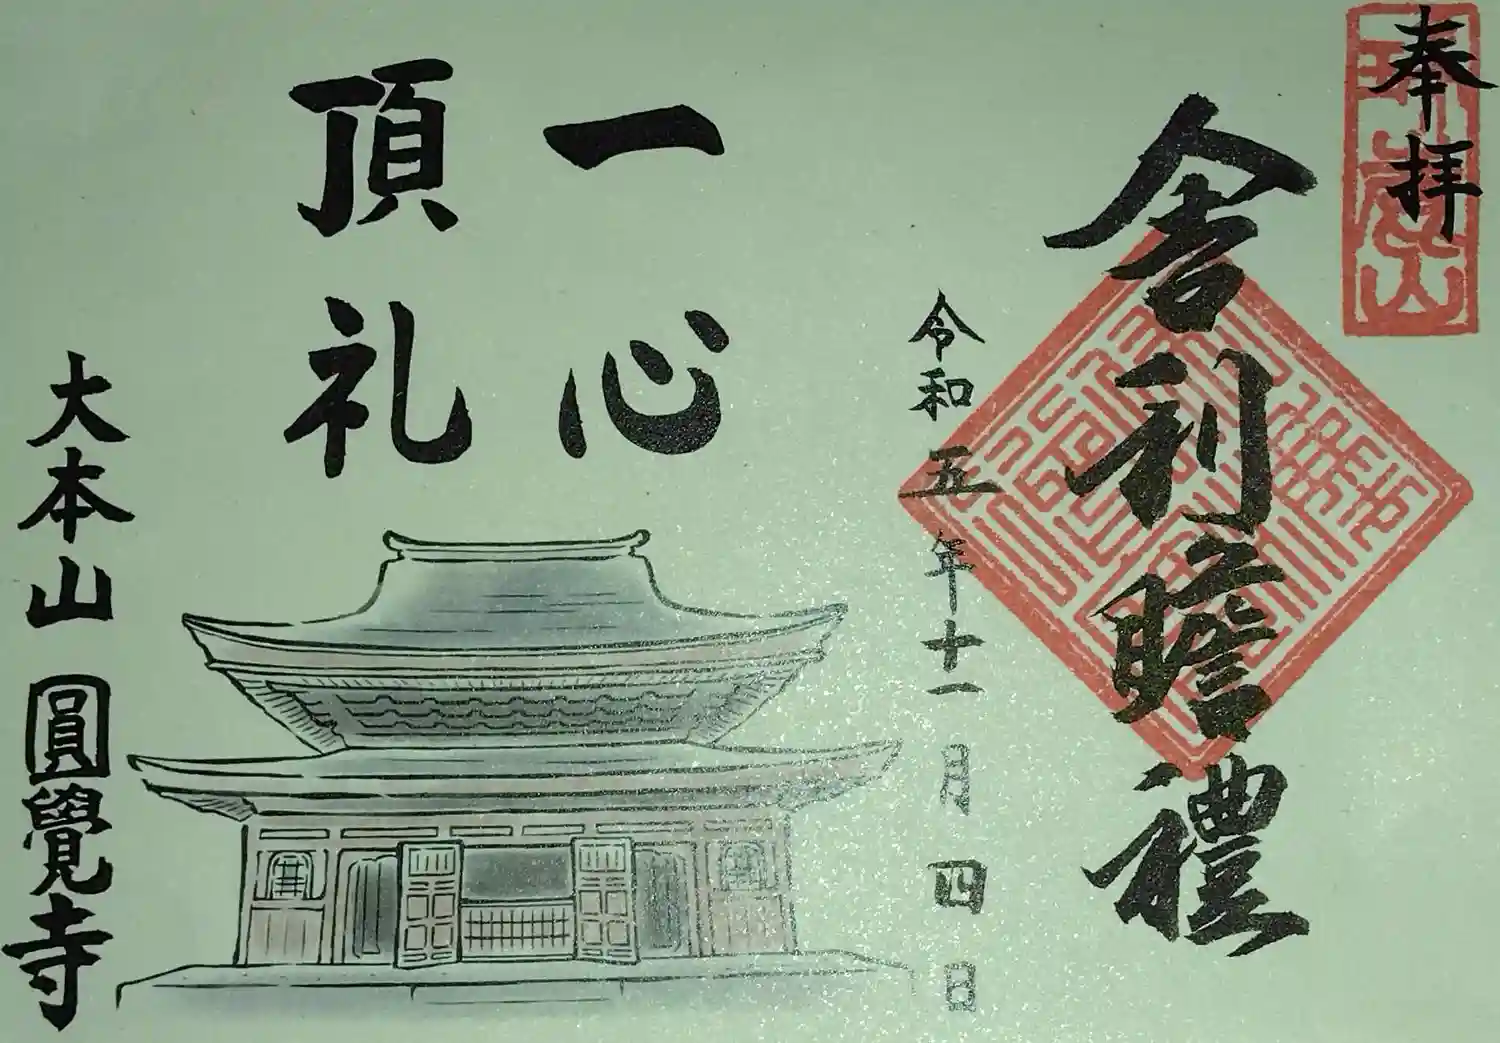 奉拝
舎利瞻禮
令和五年十一月四日
一心
頂礼
大本山 圓覺寺